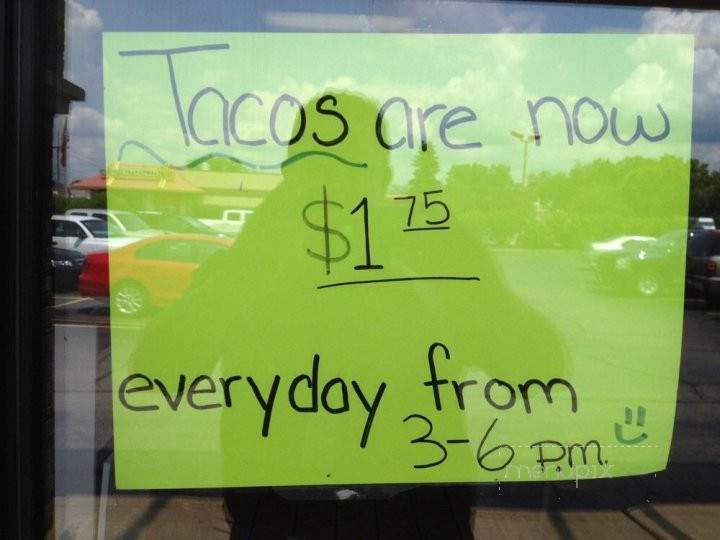 Tacos are now
$1 75
everyday from
3-6 pm.
menupix